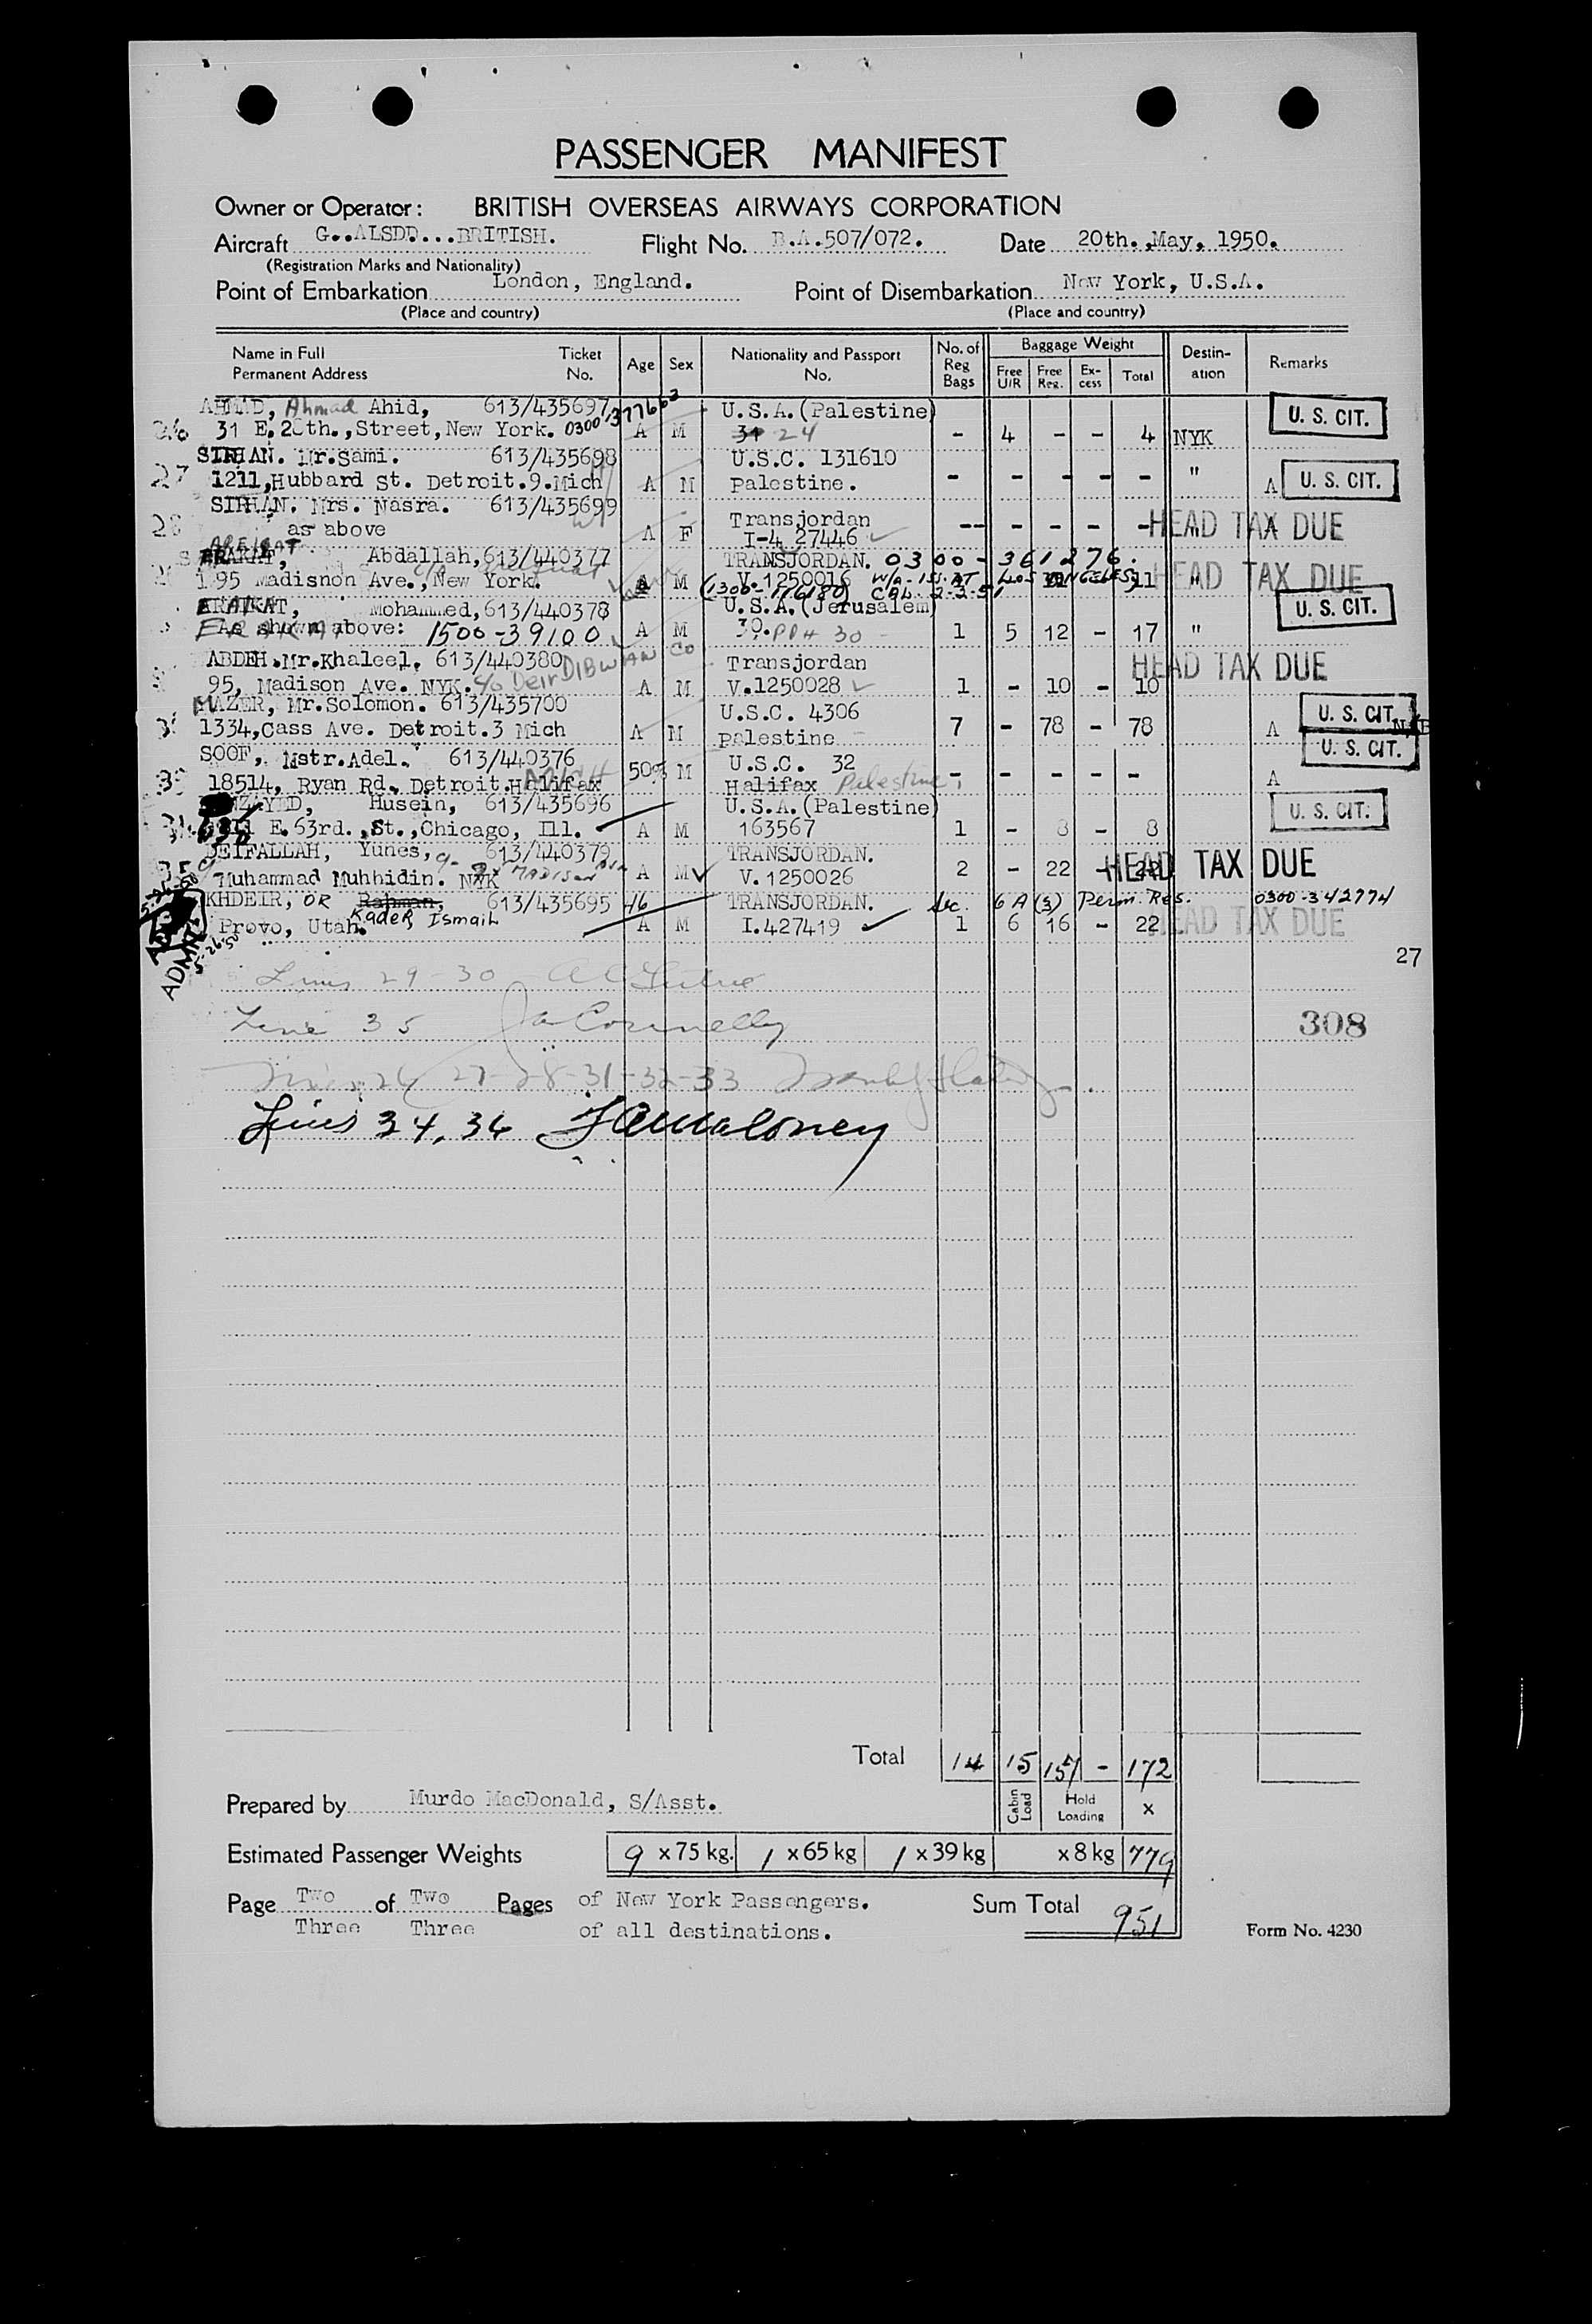 PASSENGER MANIFEST
Owner or Operator: BRITISH OVERSEAS AIRWAYS CORPORATION
Aircraft G..ALSDD...BRITISH. Flight No. B.A.507/072. Date 20th. May, 1950.
(Registration Marks and Nationality)
Point of Embarkation London, England. Point of Disembarkation New York, U.S.A.
(Place and country) (Place and country)
Name in Full Permanent Address Ticket No. Age Sex Nationality and Passport No. No. of Reg Bags Baggage Weight Free U/R Free Reg. Ex-cess Total Destin-ation Remarks
AHMAD, Ahmad Ahid, 613/435697 0300-377662 U.S.A.(Palestine) U. S. CIT.
26 31 E.20th.,Street,New York. A M 31 24 - 4 - - 4 NYK
SIRHAN. Mr.Sami. 613/435698 U.S.C. 131610
27 1211,Hubbard St. Detroit.9.Mich A M Palestine. - - - - - " A U. S. CIT.
SIRHAN. Mrs. Nasra. 613/435699 Transjordan
28 as above A F I-427446 -- - - - - " A HEAD TAX DUE
AREIKAT
Abdallah,613/440377 TRANSJORDAN. 0300-361276.
195 Madisnon Ave.,New York. A M V.1250016 (1300-116180) W/A. ISS. AT LOS ANGELES, CAL. 2-3-51 11 " HEAD TAX DUE
ERAIKAT, Mohammed,613/440378 U.S.A.(Jerusalem) U. S. CIT.
As shown above: 1500-39100 A M 30. PPH 30 1 5 12 - 17 "
ABDEH.Mr.Khaleel. 613/440380 Transjordan HEAD TAX DUE
95, Madison Ave. NYK. c/o Deir DIBWAN Co A M V.1250028 1 - 10 - 10
MAZER, Mr.Solomon. 613/435700 U.S.C. 4306 U. S. CIT.
1334,Cass Ave. Detroit.3 Mich A M Palestine 7 - 78 - 78 A
SOOF, Mstr.Adel. 613/440376 U.S.C. 32 U. S. CIT.
33 18514, Ryan Rd. Detroit.Halifax MICH 50% M Halifax Palestine - - - - - A
Husein, 613/435696 U.S.A.(Palestine) U. S. CIT.
E.63rd.,St.,Chicago, Ill. A M 163567 1 - 8 - 8
DEIFALLAH, Yunes, 613/440379 TRANSJORDAN.
35 Muhammad Muhhidin. NYK A M V.1250026 2 - 22 - 22 HEAD TAX DUE
KHDEIR, OR Rahman, 613/435695 46 TRANSJORDAN. Sec. 6A(3) Perm. Res. 0300-342774
Provo, Utah. Kader Ismail A M I.427419 1 6 16 - 22 HEAD TAX DUE
ADMIT 5-26-50
27
Lines 29-30
Line 35 Connelly 308
26 27-28-31-32-33
Lines 34, 36 Maloney
Total 14 15 151 - 172
Prepared by Murdo MacDonald, S/Asst. Cabin Load Hold Loading x
Estimated Passenger Weights 9 x 75 kg. 1 x 65 kg 1 x 39 kg x 8 kg 779
Page Two of Two Pages of New York Passengers. Sum Total 951
Three Three of all destinations. Form No. 4230